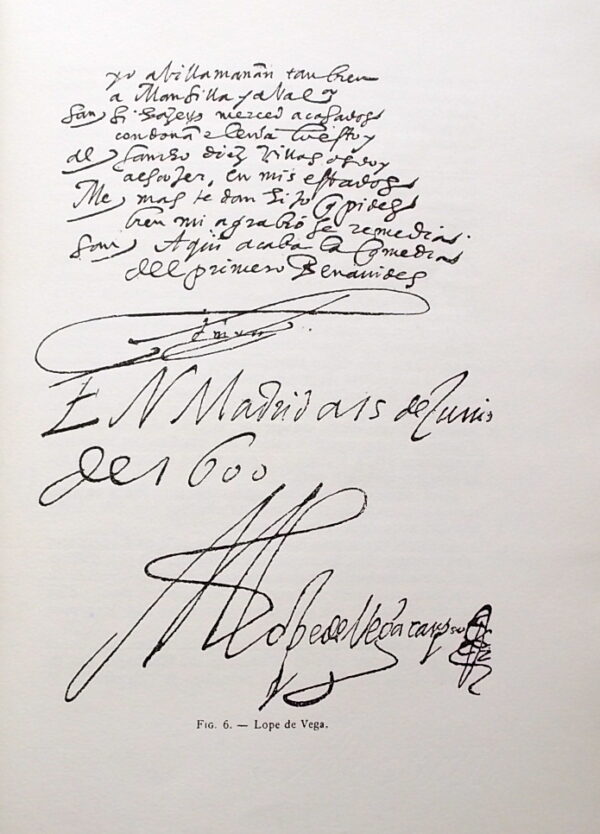 yo a villamañan tambien
a Mansilla y a
San merced acabados
con doña
del Sancho diez Villas os doy
a escojer, en mis estados
Me mas te dan Si lo q pides
bien mi agrabio se remedia.
San Aqui acaba la Comedia
del primero Benavides
EN Madrid a 15 de Junio
de 1600
Lope de Vega carpio
FIG. 6. — Lope de Vega.